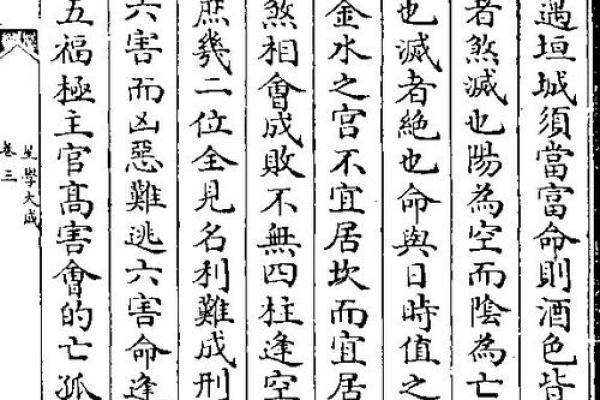 遇垣城須當富命則酒色皆
者煞滅也陽為空而陰為亡
也滅者絶也命與日時值之
金水之宮不宜居坎而宜居
煞相會成敗不無四柱逢空
庶幾二位全見名利難成刑
六害而凶惡難逃六害命逢
五福極主官髙害會的亡孤
星學大成
卷三